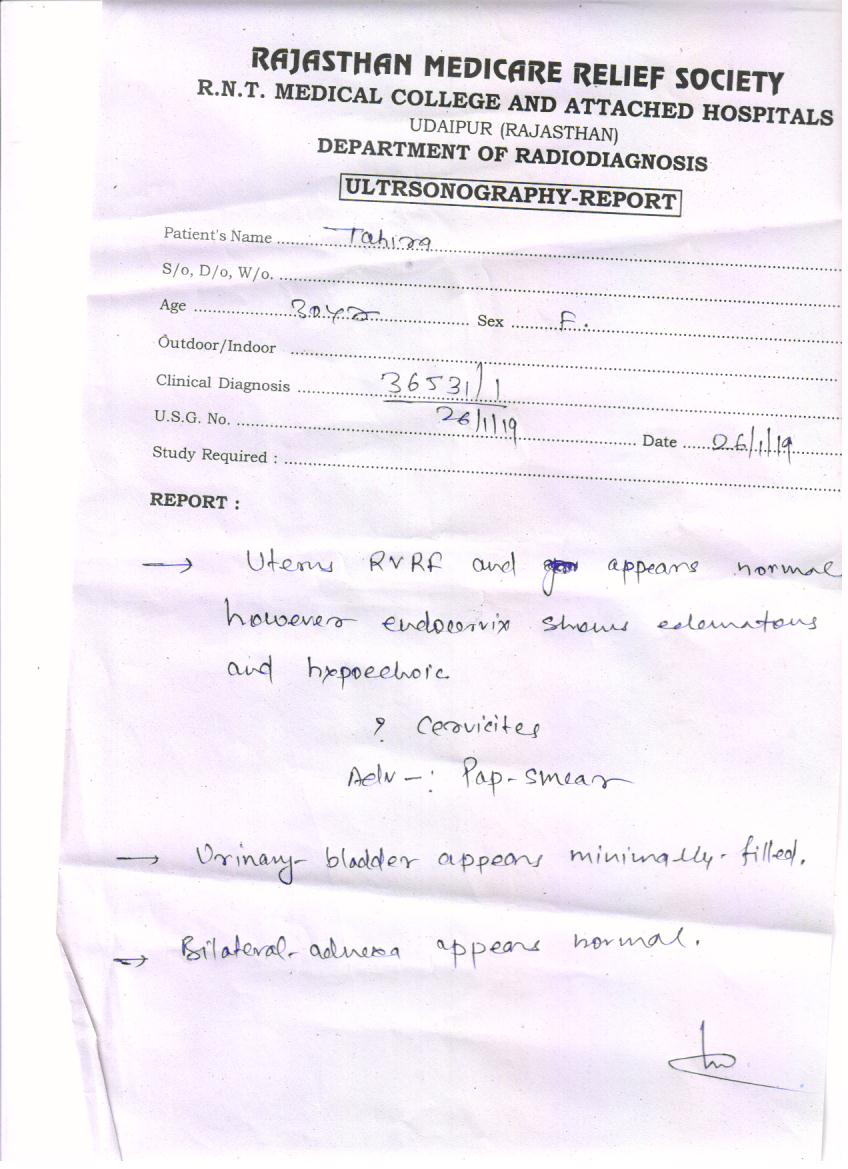 RAJASTHAN MEDICARE RELIEF SOCIETY
R.N.T. MEDICAL COLLEGE AND ATTACHED HOSPITALS
UDAIPUR (RAJASTHAN)
DEPARTMENT OF RADIODIAGNOSIS
ULTRSONOGRAPHY-REPORT
Patient's Name Tahira
S/o, D/o, W/o.
Age 30Yrs Sex F.
Outdoor/Indoor
Clinical Diagnosis 36531/1
U.S.G. No. 26/1/19 Date 26/1/19
Study Required :
REPORT :
→ Uterus RVRF and appears normal
however endocervix shows edematous
and hypoechoic
? Cervicites
Adv -: Pap-smear
→ Urinary-bladder appears minimally-filled.
→ Bilateral-adnexa appears normal.